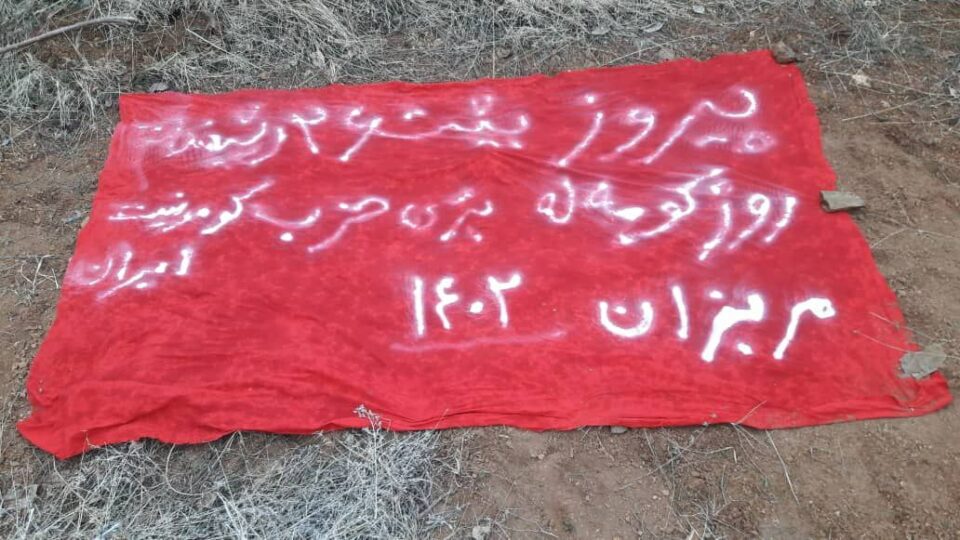 پیروز بیت ۲۶
روز کومه له بژی حزب کومونیست
ایران
مریوان ۱۴۰۲